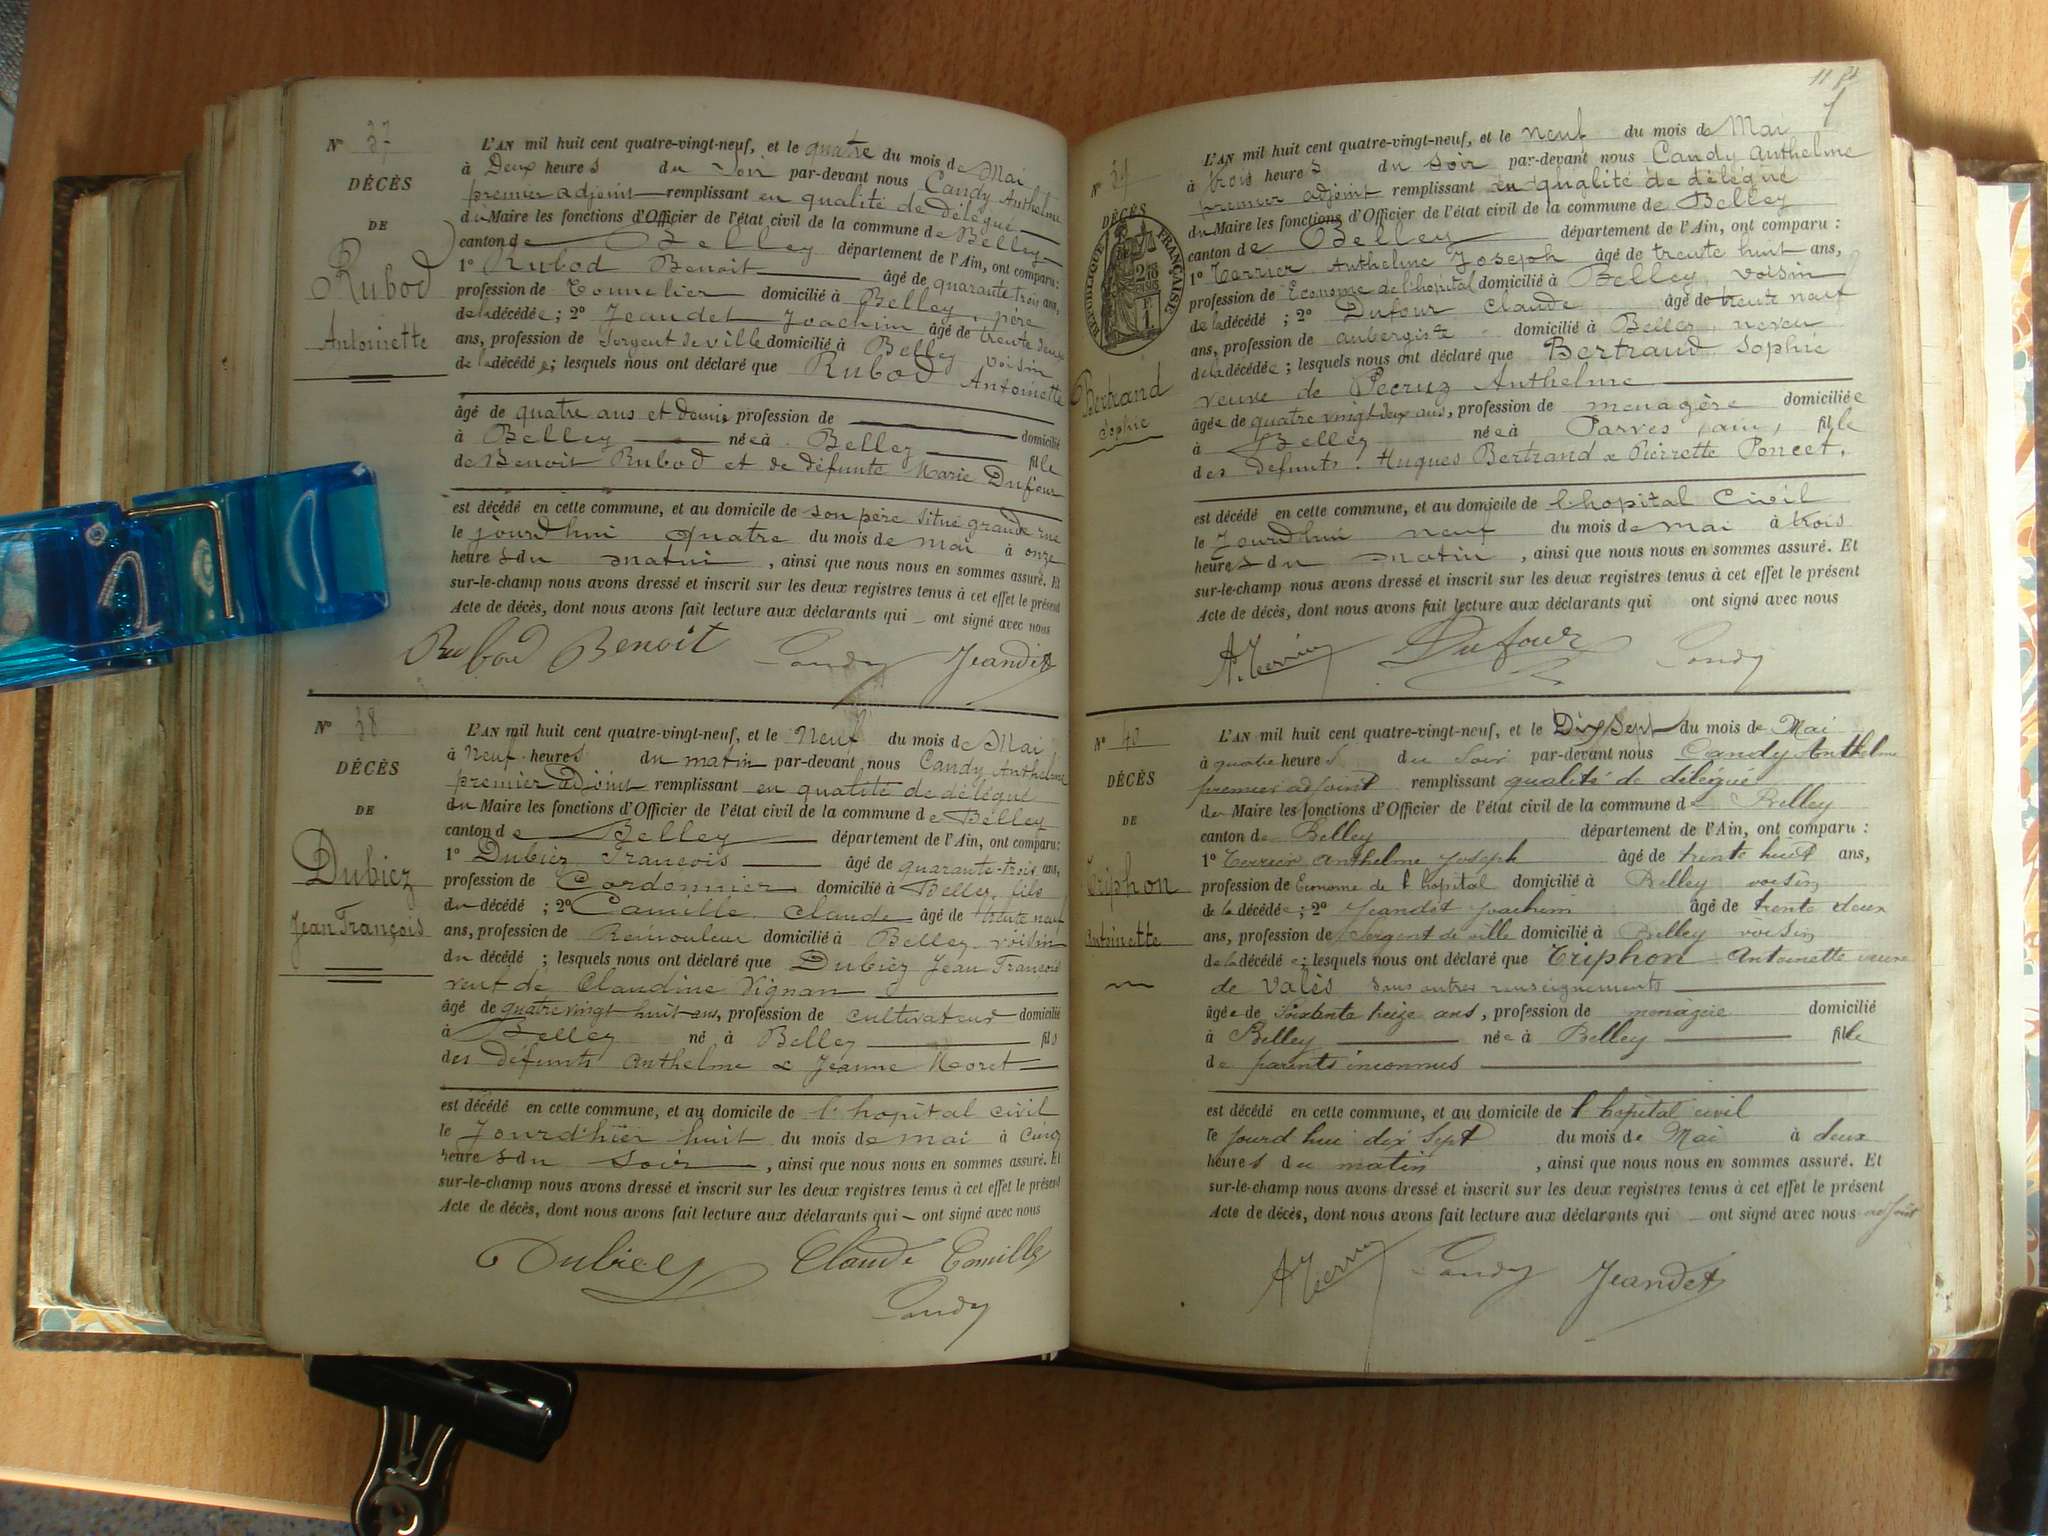 Nº 37
DÉCÈS
DE
Rubod
Antoinette
L'AN mil huit cent quatre-vingt-neuf, et le quatre du mois de Mai
à Deux heures du Soir par-devant nous Candy Anthelme
premier adjoint remplissant en qualité de délégué
du Maire les fonctions d'Officier de l'état civil de la commune de Belley
canton de Belley département de l'Ain, ont comparu:
1º Rubod Benoit âgé de quarante trois ans,
profession de Tonnelier domicilié à Belley, père
de la décédée; 2º Jeandet Joachim âgé de trente deux
ans, profession de Sergent de ville domicilié à Belley voisin
de la décédée; lesquels nous ont déclaré que Rubod Antoinette
âgé de quatre ans et demie profession de domicilié
à Belley née à Belley fille
de Benoit Rubod et de défunte Marie Dufour
est décédé en cette commune, et au domicile de son père situé grande rue
le jourd'hui quatre du mois de mai à onze
heures du matin, ainsi que nous nous en sommes assuré. Et
sur-le-champ nous avons dressé et inscrit sur les deux registres tenus à cet effet le présent
Acte de décès, dont nous avons fait lecture aux déclarants qui ont signé avec nous
Rubod Benoit Candy Jeandet
Nº 38
DÉCÈS
DE
Dubiez
Jean François
L'AN mil huit cent quatre-vingt-neuf, et le Neuf du mois de Mai
à Neuf heures du matin par-devant nous Candy Anthelme
premier adjoint remplissant en qualité de délégué
du Maire les fonctions d'Officier de l'état civil de la commune de Belley
canton de Belley département de l'Ain, ont comparu:
1º Dubiez François âgé de quarante-trois ans,
profession de Cordonnier domicilié à Belley, fils
du décédé ; 2º Camille Claude âgé de trente neuf
ans, profession de Remouleur domicilié à Belley voisin
du décédé ; lesquels nous ont déclaré que Dubiez Jean François
veuf de Claudine Vignan
âgé de quatre vingt huit ans, profession de cultivateur domicilié
à Belley né à Belley fils
des défunts Anthelme & Jeanne Moret
est décédé en cette commune, et au domicile de l'hopital civil
le Jourd'hier huit du mois de mai à cinq
heures du soir, ainsi que nous nous en sommes assuré. Et
sur-le-champ nous avons dressé et inscrit sur les deux registres tenus à cet effet le présent
Acte de décès, dont nous avons fait lecture aux déclarants qui ont signé avec nous
Dubiez Claude Camille
Candy
11
Nº 39
DÉCÈS
RÉPUBLIQUE FRANÇAISE
Bertrand
Sophie
L'AN mil huit cent quatre-vingt-neuf, et le neuf du mois de Mai
à trois heures du soir par-devant nous Candy Anthelme
premier adjoint remplissant en qualité de délégué
du Maire les fonctions d'Officier de l'état civil de la commune de Belley
canton de Belley département de l'Ain, ont comparu :
1º Terrier Anthelme Joseph âgé de trente huit ans,
profession de Econome de l'hopital domicilié à Belley, voisin
de la décédé ; 2º Dufour Claude âgé de trente neuf
ans, profession de aubergiste domicilié à Belley, neveu
de la décédée ; lesquels nous ont déclaré que Bertrand Sophie
veuve de Pecruz Anthelme
âgée de quatre vingt deux ans, profession de menagère domiciliée
à Belley née à Parves, ain, fille
des défunts Hugues Bertrand & Pierrette Poncet.
est décédé en cette commune, et au domicile de l'hopital Civil
le Jourd'hui neuf du mois de mai à trois
heures du matin, ainsi que nous nous en sommes assuré. Et
sur-le-champ nous avons dressé et inscrit sur les deux registres tenus à cet effet le présent
Acte de décès, dont nous avons fait lecture aux déclarants qui ont signé avec nous
A. Terrier Dufour Candy
Nº 40
DÉCÈS
DE
Triphon
Antoinette
L'AN mil huit cent quatre-vingt-neuf, et le Dix Sept du mois de Mai
à quatre heures du Soir par-devant nous Candy Anthelme
premier adjoint remplissant qualité de délégué
du Maire les fonctions d'Officier de l'état civil de la commune de Belley
canton de Belley département de l'Ain, ont comparu :
1º Terrier Anthelme Joseph âgé de trente huit ans,
profession de Econome de l'hopital domicilié à Belley voisin
de la décédée ; 2º Jeandet Joachim âgé de trente deux
ans, profession de Sergent de ville domicilié à Belley voisin
de la décédée ; lesquels nous ont déclaré que Triphon Antoinette veuve
de Valès sans autres renseignements
âgée de Soixante treize ans, profession de menagère domicilié
à Belley née à Belley fille
de parents inconnus
est décédé en cette commune, et au domicile de l'hopital civil
le jourd'hui dix sept du mois de Mai à deux
heures du matin, ainsi que nous nous en sommes assuré. Et
sur-le-champ nous avons dressé et inscrit sur les deux registres tenus à cet effet le présent
Acte de décès, dont nous avons fait lecture aux déclarants qui ont signé avec nous adjoint
A Terrier Candy Jeandet